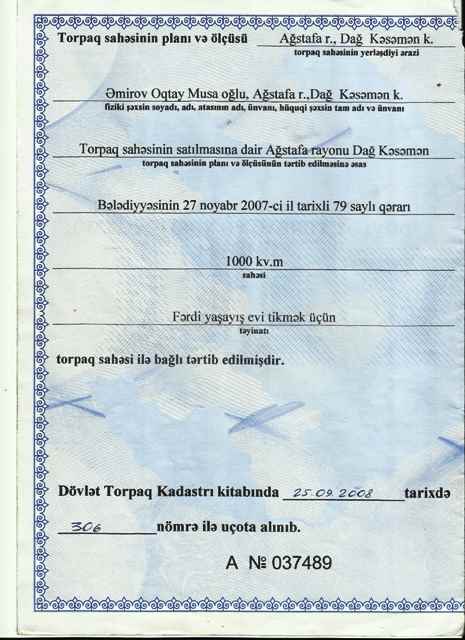 Torpaq sahəsinin planı və ölçüsü Ağstafa r., Dağ Kəsəmən k.
torpaq sahəsinin yerləşdiyi ərazi
Əmirov Oqtay Musa oğlu, Ağstafa r.,Dağ Kəsəmən k.
fiziki şəxsin soyadı, adı, atasının adı, ünvanı, hüquqi şəxsin tam adı və ünvanı
Torpaq sahəsinin satılmasına dair Ağstafa rayonu Dağ Kəsəmən
torpaq sahəsinin planı və ölçüsünün tərtib edilməsinə əsas
Bələdiyyəsinin 27 noyabr 2007-ci il tarixli 79 saylı qərarı
1000 kv.m
sahəsi
Fərdi yaşayış evi tikmək üçün
təyinatı
torpaq sahəsi ilə bağlı tərtib edilmişdir.
Dövlət Torpaq Kadastrı kitabında 25.09.2008 tarixdə
306 nömrə ilə uçota alınıb.
A № 037489